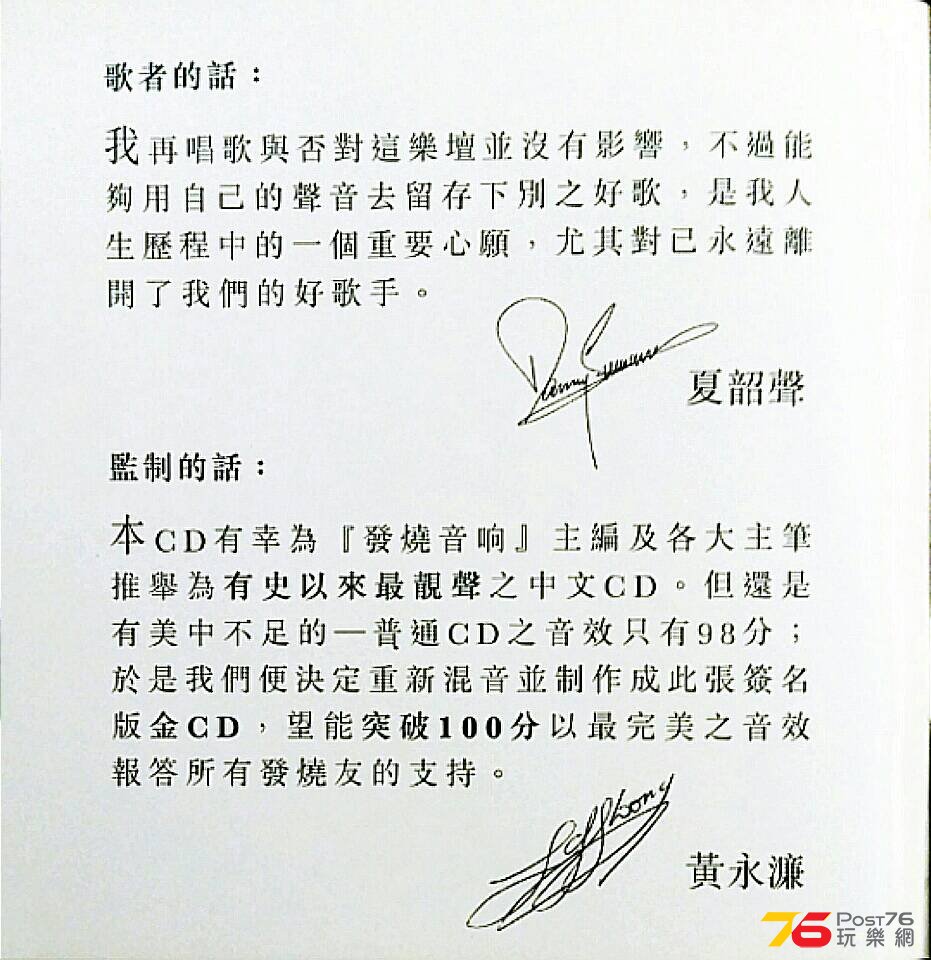 歌者的話：
我再唱歌與否對這樂壇並沒有影響，不過能
夠用自己的聲音去留存下別之好歌，是我人
生歷程中的一個重要心願，尤其對已永遠離
開了我們的好歌手。
夏韶聲
監制的話：
本CD有幸為『發燒音响』主編及各大主筆
推舉為有史以來最靚聲之中文CD。但還是
有美中不足的—普通CD之音效只有98分；
於是我們便決定重新混音並制作成此張簽名
版金CD，望能突破100分以最完美之音效
報答所有發燒友的支持。
黃永濂
76 POST76
玩樂網